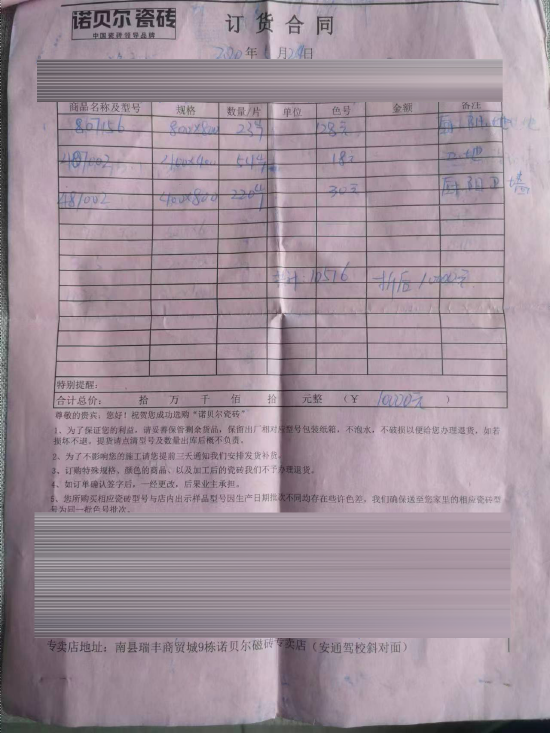 诺贝尔瓷砖
中国瓷砖领导品牌
订货合同
年 月 日
商品名称及型号 规格 数量/片 单位 色号 金额 备注
807156 800x800 23片 128元
481002 400x400 51片 18元 卫地
481002 400x800 220片 30元 厨阳卫墙
共计:10516 折后10000元
特别提醒:
合计总价: 拾 万 千 佰 拾 元整 (¥ 10000元 )
尊敬的贵宾:您好!祝贺您成功选购“诺贝尔瓷砖”
1、为了保证您的利益,请妥善保管剩余货品,保留出厂相对应型号包装纸箱,不泡水,不破损以便给您办理退货,如若
损坏不退。提货请点清型号及数量出库后概不负责。
2、为了不影响您的施工请您提前三天通知我们安排发货补货。
3、订购特殊规格、颜色的商品、以及加工后的瓷砖我们不予办理退货。
4、如订单确认签字后,一经更改,后果业主承担。
5、您所购买相应瓷砖型号与店内出示样品型号因生产日期批次不同均存在些许色差,我们确保送至您家里的相应瓷砖型
号为同一桩色号批次。
专卖店地址:南县瑞丰商贸城9栋诺贝尔磁砖专卖店(安通驾校斜对面)